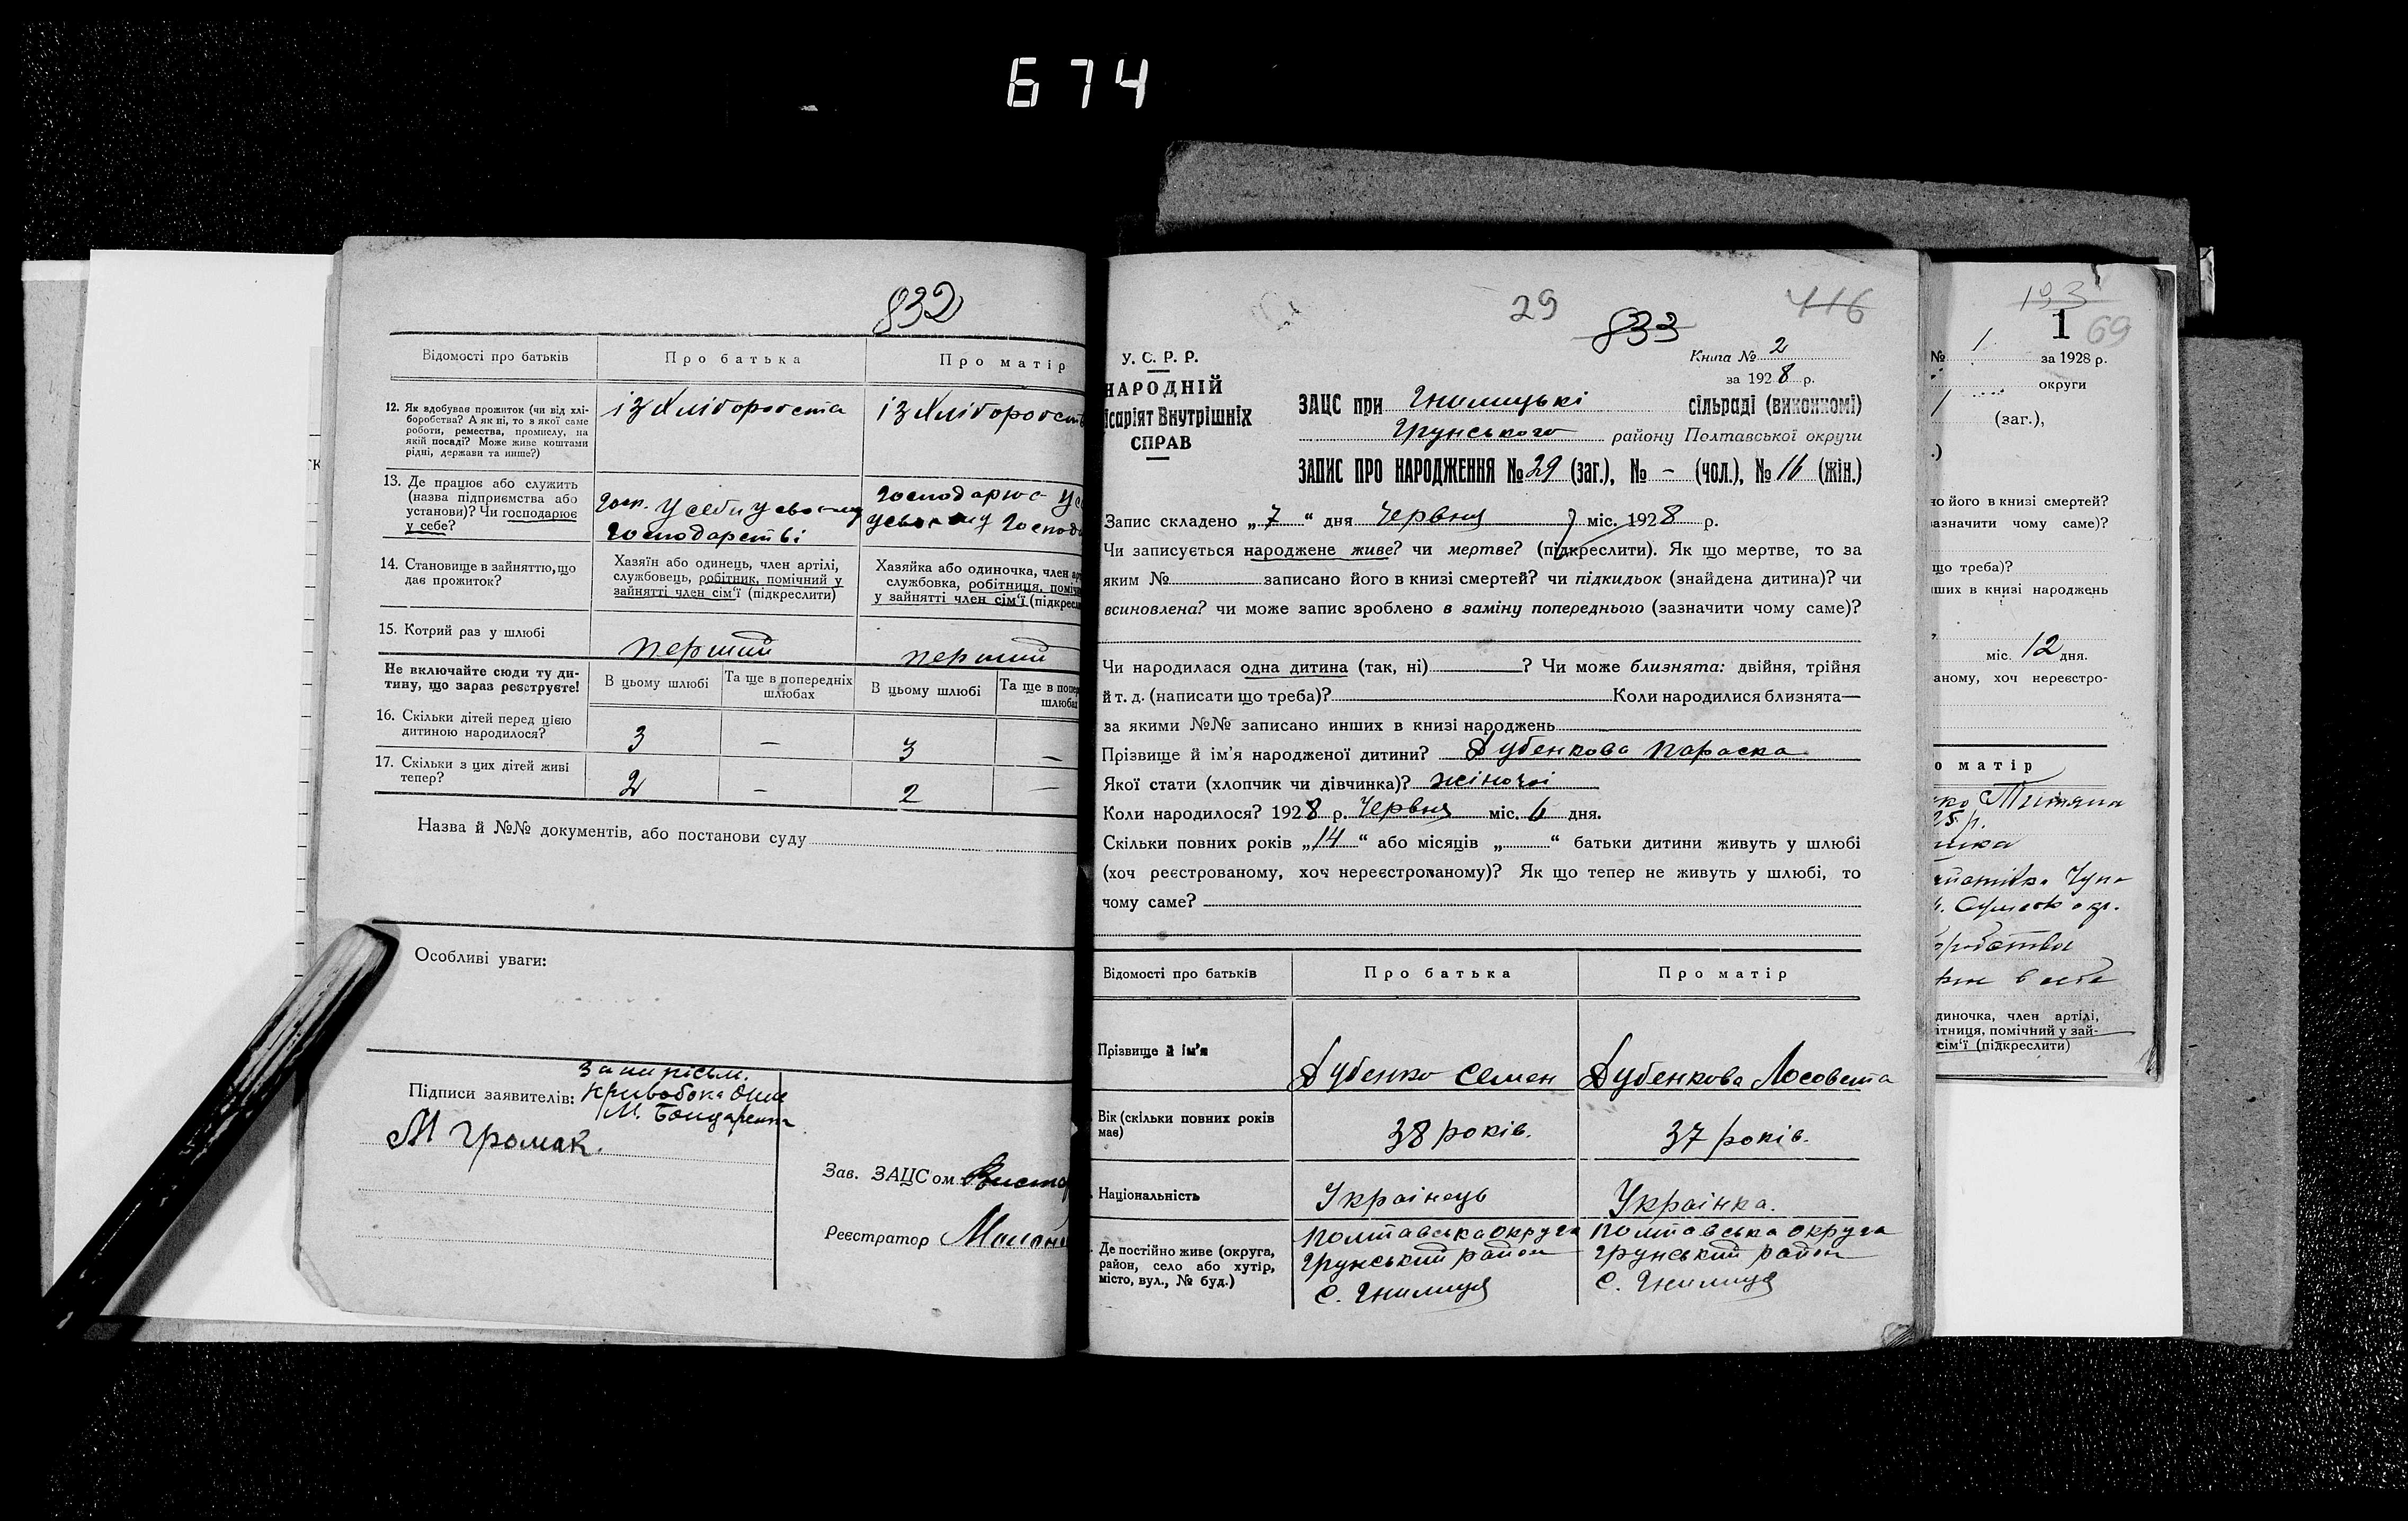 674
832
Відомості про батьків
Про батька
Про матір
12. Як вдобуває прожиток (чи від хлі-
боробства? А як ні, то з якої саме
роботи, ремества, промислу, на
якій посаді? Може живе коштами
рідні, держави та инше?)
із хліборобста
із хліборобст
13. Де працює або служить
(назва підприємства або
установи)? Чи господарює
у себе?
госп. у себи у своєму
господарстві
господарює у се
у своєму господ
14. Становище в зайняттю, що
дає прожиток?
Хазяїн або одинець, член артілі,
службовець, робітник, помічний у
зайнятті член сім'ї (підкреслити)
Хазяйка або одиночка, член ар
службовка, робітниця, поміч
у зайнятті член сім'ї (підкресл
15. Котрий раз у шлюбі
перший
перший
Не включайте сюди ту ди-
тину, що зараз реєструєте!
В цьому шлюбі
Та ще в попередніх
шлюбах
В цьому шлюбі
Та ще в попер
шлюбах
16. Скільки дітей перед цією
дитиною народилося?
3 – 3 –
17. Скільки з цих дітей живі
тепер?
2 – 2 –
Назва й №№ документів, або постанови суду
Особливі уваги:
Підписи заявителів:
М. Бондаренко
М Громак.
Зав. ЗАЦСом
Реєстратор
29
416
833
Книга № 2
за 1928 р.
У. С. Р. Р.
НАРОДНІЙ
ісаріят Внутрішніх
СПРАВ
ЗАЦС при Гнилицькі сільраді (виконкомі)
Грунського району Полтавської округи
ЗАПИС ПРО НАРОДЖЕННЯ № 29 (заг.), № – (чол.), № 16 (жін.)
Запис складено „7“ дня Червня міс. 1928 р.
Чи записується народжене живе? чи мертве? (підкреслити). Як що мертве, то за
яким № записано його в книзі смертей? чи підкидьок (знайдена дитина)? чи
всиновлена? чи може запис зроблено в заміну попереднього (зазначити чому саме)?
Чи народилася одна дитина (так, ні) ? Чи може близнята: двійня, трійня
й т. д. (написати що треба)? Коли народилися близнята—
за якими №№ записано инших в книзі народжень
Прізвище й ім'я народженої дитини? Дубенкова Параска
Якої стати (хлопчик чи дівчинка)? жіночої
Коли народилося? 1928 р. Червня міс. 6 дня.
Скільки повних років „14“ або місяців „ “ батьки дитини живуть у шлюбі
(хоч реєстрованому, хоч нереєстрованому)? Як що тепер не живуть у шлюбі, то
чому саме?
Відомості про батьків
Про батька
Про матір
Прізвище й ім'я
Дубенко Семен
Дубенкова Лосовета
Вік (скільки повних років
має)
38 років.
37 років.
Національність
Українець
Українка.
Де постійно живе (округа,
район, село або хутір,
місто, вул., № буд.)
Полтавська округа
Грунський район
с. Гнилиця
Полтавська округа
Грунський район
с. Гнилиця
193
1
69
№ 1 за 1928 р.
округи
1 (заг.),
но його в книзі смертей?
зазначити чому саме)?
що треба)?
нших в книзі народжень
міс. 12 дня.
аному, хоч нереєстро-
о матір
25 р.
диночка, член артілі,
ітниця, помічний у зай-
сім'ї (підкреслити)